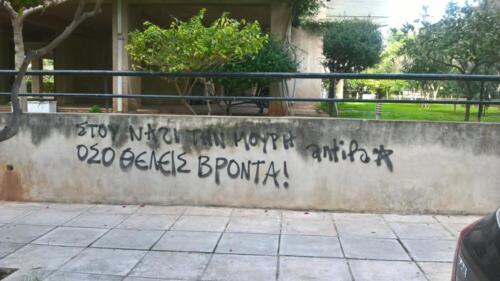 ΣΤΟΥ ΝΑΖΙ ΤΗΝ ΜΟΥΡΗ antifa
ΟΣΟ ΘΕΛΕΙΣ ΒΡΟΝΤΑ!